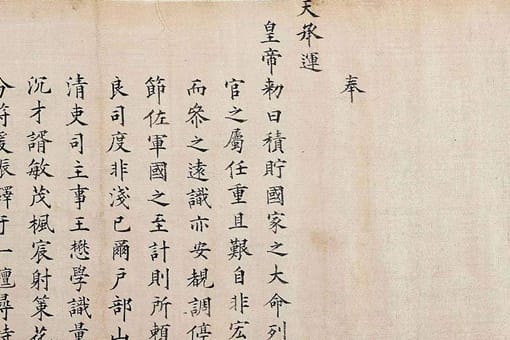 奉
天承運
皇帝勑曰積貯國家之大命列
官之屬任重且艱自非宏
而叅之遠識亦安覩調停
節佐軍國之至計則所賴
良司度非淺已爾戶部山
清吏司主事王懋學識量
沉才諝敏茂楓宸射策花
分符爰振鐸于一氊尋持